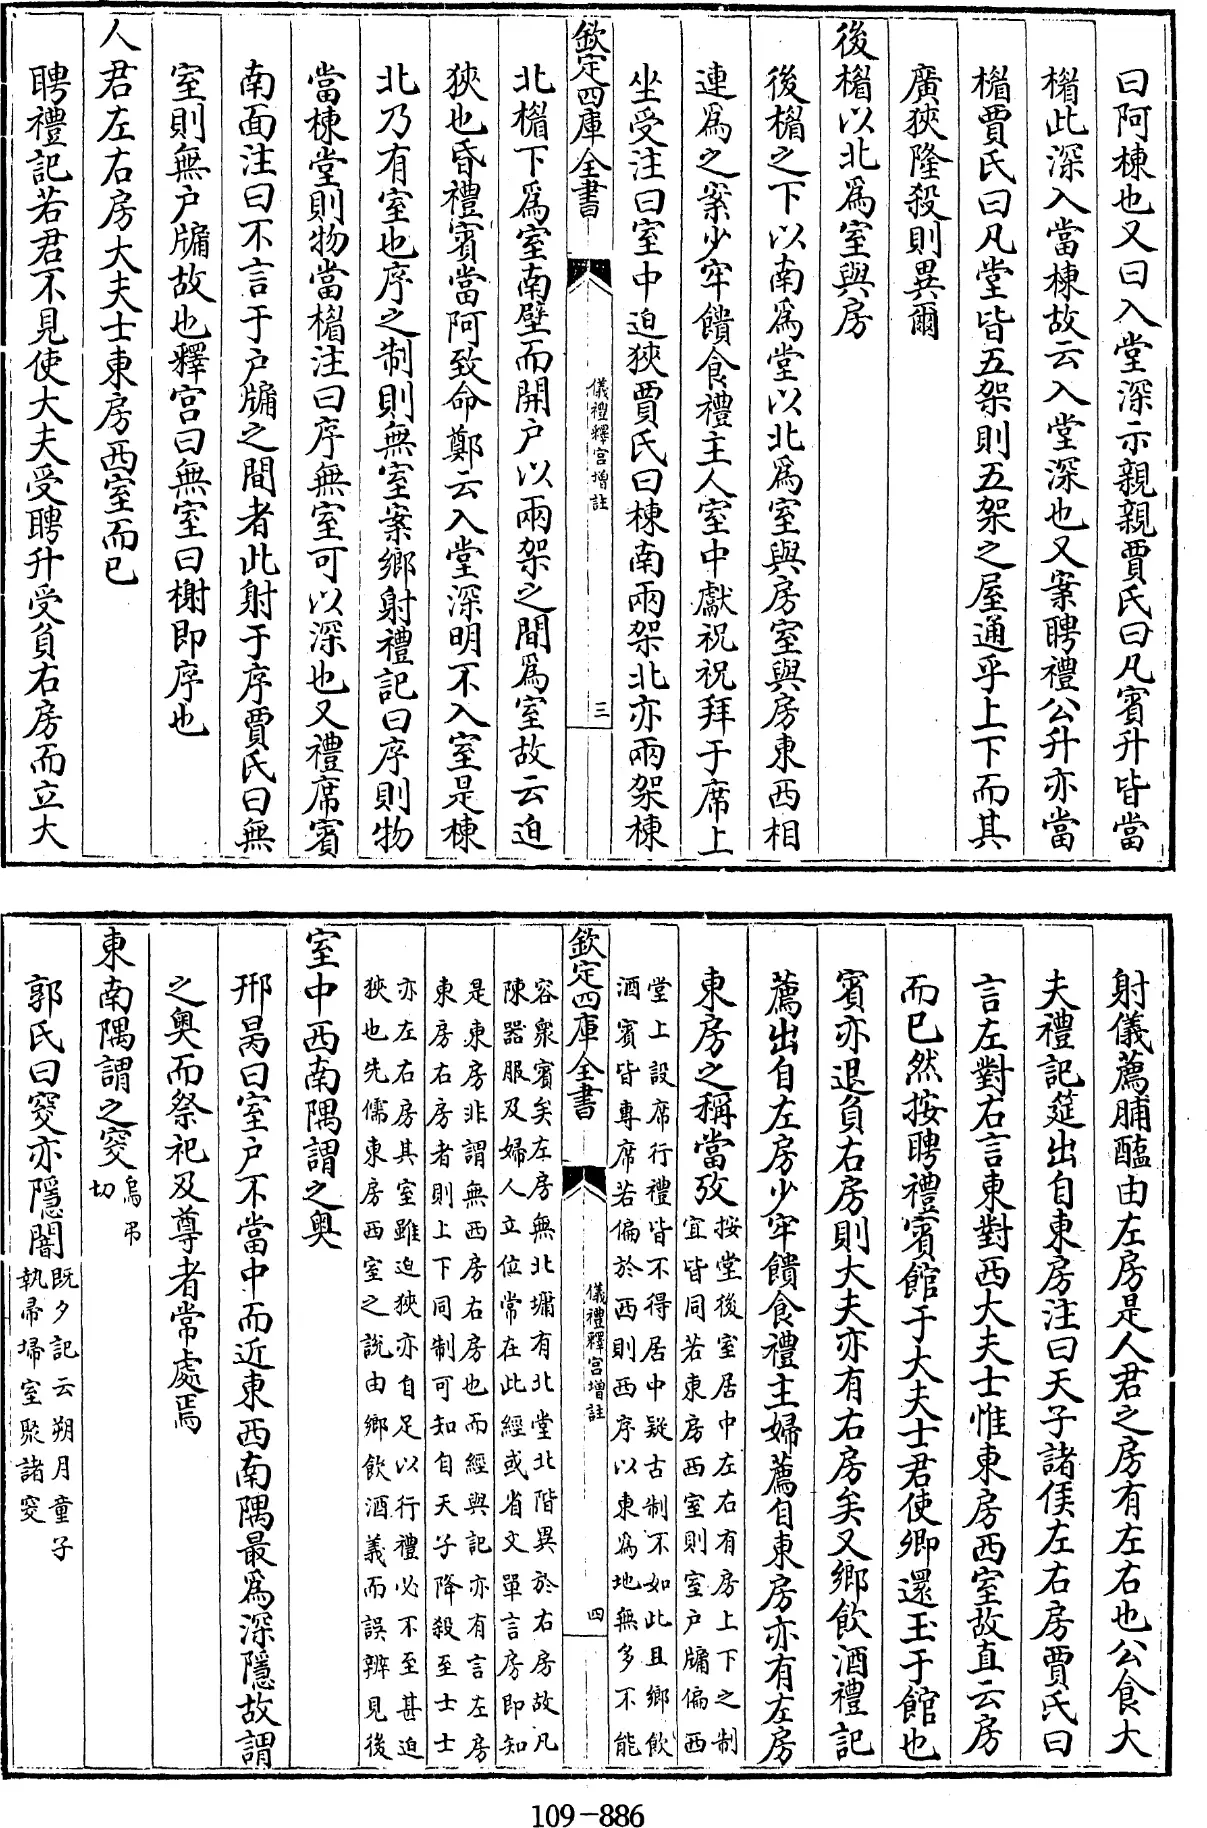 曰阿棟也又曰入堂深示親親賈氏曰凡賓升皆當
楣此深入當棟故云入堂深也又案聘禮公升亦當
楣賈氏曰凡堂皆五架則五架之屋通乎上下而其
廣狹隆殺則異爾
後楣以北爲室與房
後楣之下以南爲堂以北爲室與房室與房東西相
連爲之案少牢饋食禮主人室中獻祝祝拜于席上
坐受注曰室中迫狹賈氏曰棟南兩架北亦兩架棟
欽定四庫全書
儀禮釋宮增註
三
北楣下爲室南壁而開戶以兩架之間爲室故云迫
狹也昏禮賓當阿致命鄭云入堂深明不入室是棟
北乃有室也序之制則無室案鄉射禮記曰序則物
當棟堂則物當楣注曰序無室可以深也又禮席賓
南面注曰不言于戶牖之間者此射于序賈氏曰無
室則無戶牖故也釋宮曰無室曰榭即序也
人君左右房大夫士東房西室而已
聘禮記若君不見使大夫受聘升受負右房而立大
射儀薦脯醢由左房是人君之房有左右也公食大
夫禮記筵出自東房注曰天子諸侯左右房賈氏曰
言左對右言東對西大夫士惟東房西室故直云房
而已然按聘禮賓館于大夫士君使卿還玉于館也
賓亦退負右房則大夫亦有右房矣又鄉飲酒禮記
薦出自左房少牢饋食禮主婦薦自東房亦有左房
東房之稱當攷按堂後室居中左右有房上下之制
宜皆同若東房西室則室戶牖偏西
堂上設席行禮皆不得居中疑古制不如此且鄉飲
酒賓皆專席若偏於西則西序以東爲地無多不能
欽定四庫全書
儀禮釋宮增註
四
容衆賓矣左房無北墉有北堂北階異於右房故凡
陳器服及婦人立位常在此經或省文單言房即知
是東房非謂無西房右房也而經與記亦有言左房
東房右房者則上下同制可知自天子降殺至士士
亦左右房其室雖迫狹亦自足以行禮必不至甚迫
狹也先儒東房西室之說由鄉飲酒義而誤辨見後
室中西南隅謂之奧
邢昺曰室戶不當中而近東西南隅最爲深隱故謂
之奧而祭祀及尊者常處焉
東南隅謂之窔烏弔
切
郭氏曰窔亦隱闇既夕記云朔月童子
執帚埽室聚諸窔
109-886